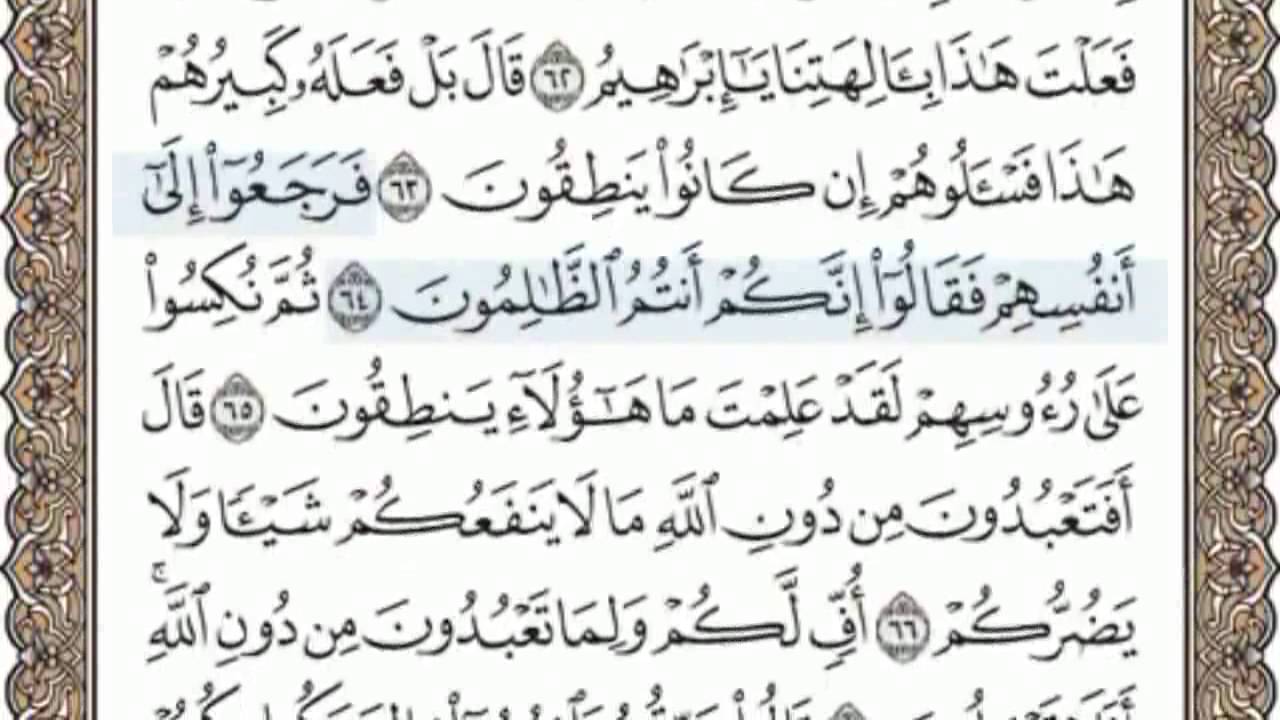 فَعَلْتَ هَـٰذَا بِـَٔالِهَتِنَا يَـٰٓإِبْرَٰهِيمُ ٦٢ قَالَ بَلْ فَعَلَهُۥ كَبِيرُهُمْ
هَـٰذَا فَسْـَٔلُوهُمْ إِن كَانُوا۟ يَنطِقُونَ ٦٣ فَرَجَعُوٓا۟ إِلَىٰٓ
أَنفُسِهِمْ فَقَالُوٓا۟ إِنَّكُمْ أَنتُمُ ٱلظَّـٰلِمُونَ ٦٤ ثُمَّ نُكِسُوا۟
عَلَىٰ رُءُوسِهِمْ لَقَدْ عَلِمْتَ مَا هَـٰٓؤُلَآءِ يَنطِقُونَ ٦٥ قَالَ
أَفَتَعْبُدُونَ مِن دُونِ ٱللَّهِ مَا لَا يَنفَعُكُمْ شَيْـًٔا وَلَا
يَضُرُّكُمْ ٦٦ أُفٍّ لَّكُمْ وَلِمَا تَعْبُدُونَ مِن دُونِ ٱللَّهِ ۚ